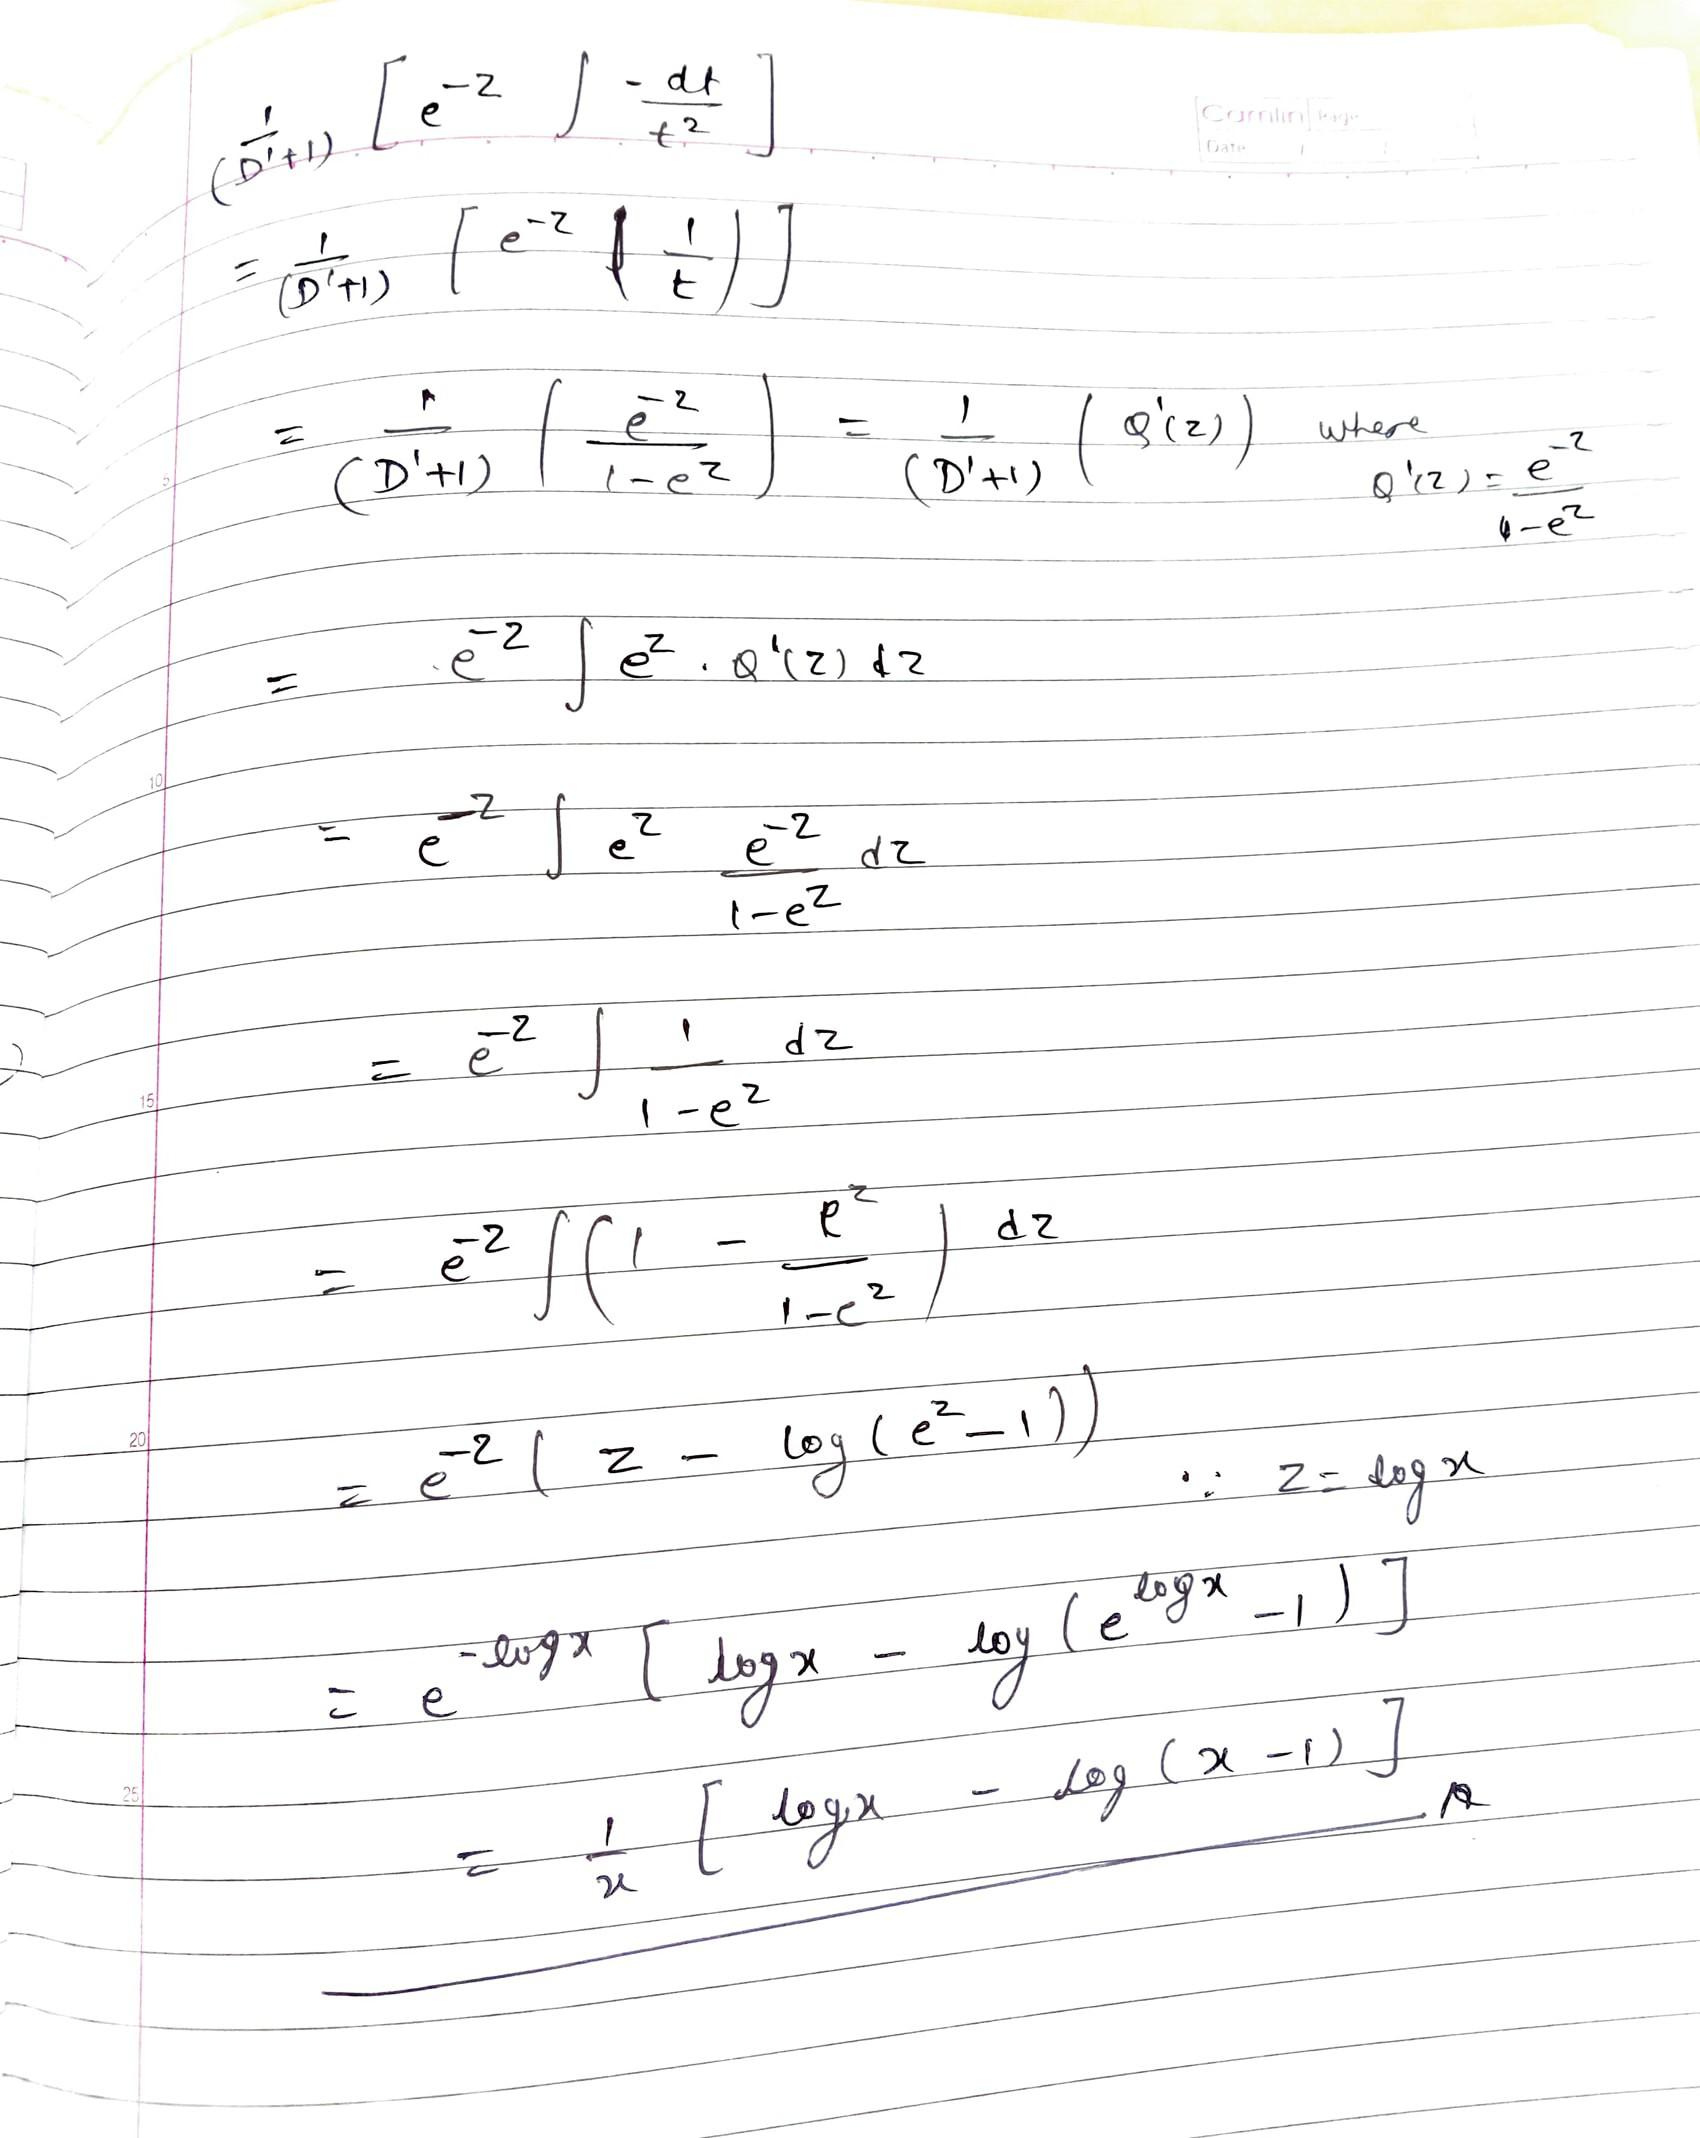 Camlin Page
Date / /
1/(D'+1) [ e^-z ∫ - dt/t^2 ]
= 1/(D'+1) [ e^-z ( 1/t ) ]
= 1/(D'+1) ( e^-z / 1-e^z ) = 1/(D'+1) ( Q'(z) ) where
Q'(z) = e^-z / 1-e^z
5
= e^-z ∫ e^z . Q'(z) dz
10
= e^-z ∫ e^z e^-z / 1-e^z dz
= e^-z ∫ 1 / 1-e^z dz
15
= e^-z ∫ ( 1 - e^z / 1-e^z ) dz
20
= e^-z ( z - log ( e^z - 1 ) )
∵ z = log x
= e^-log x [ log x - log ( e^log x - 1 ) ]
25
= 1/x [ log x - log ( x - 1 ) ]